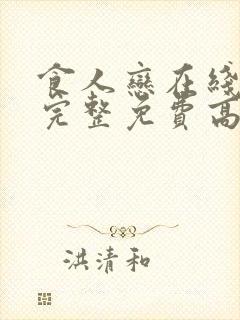 食人戀在綫
完整免費高
洪清和